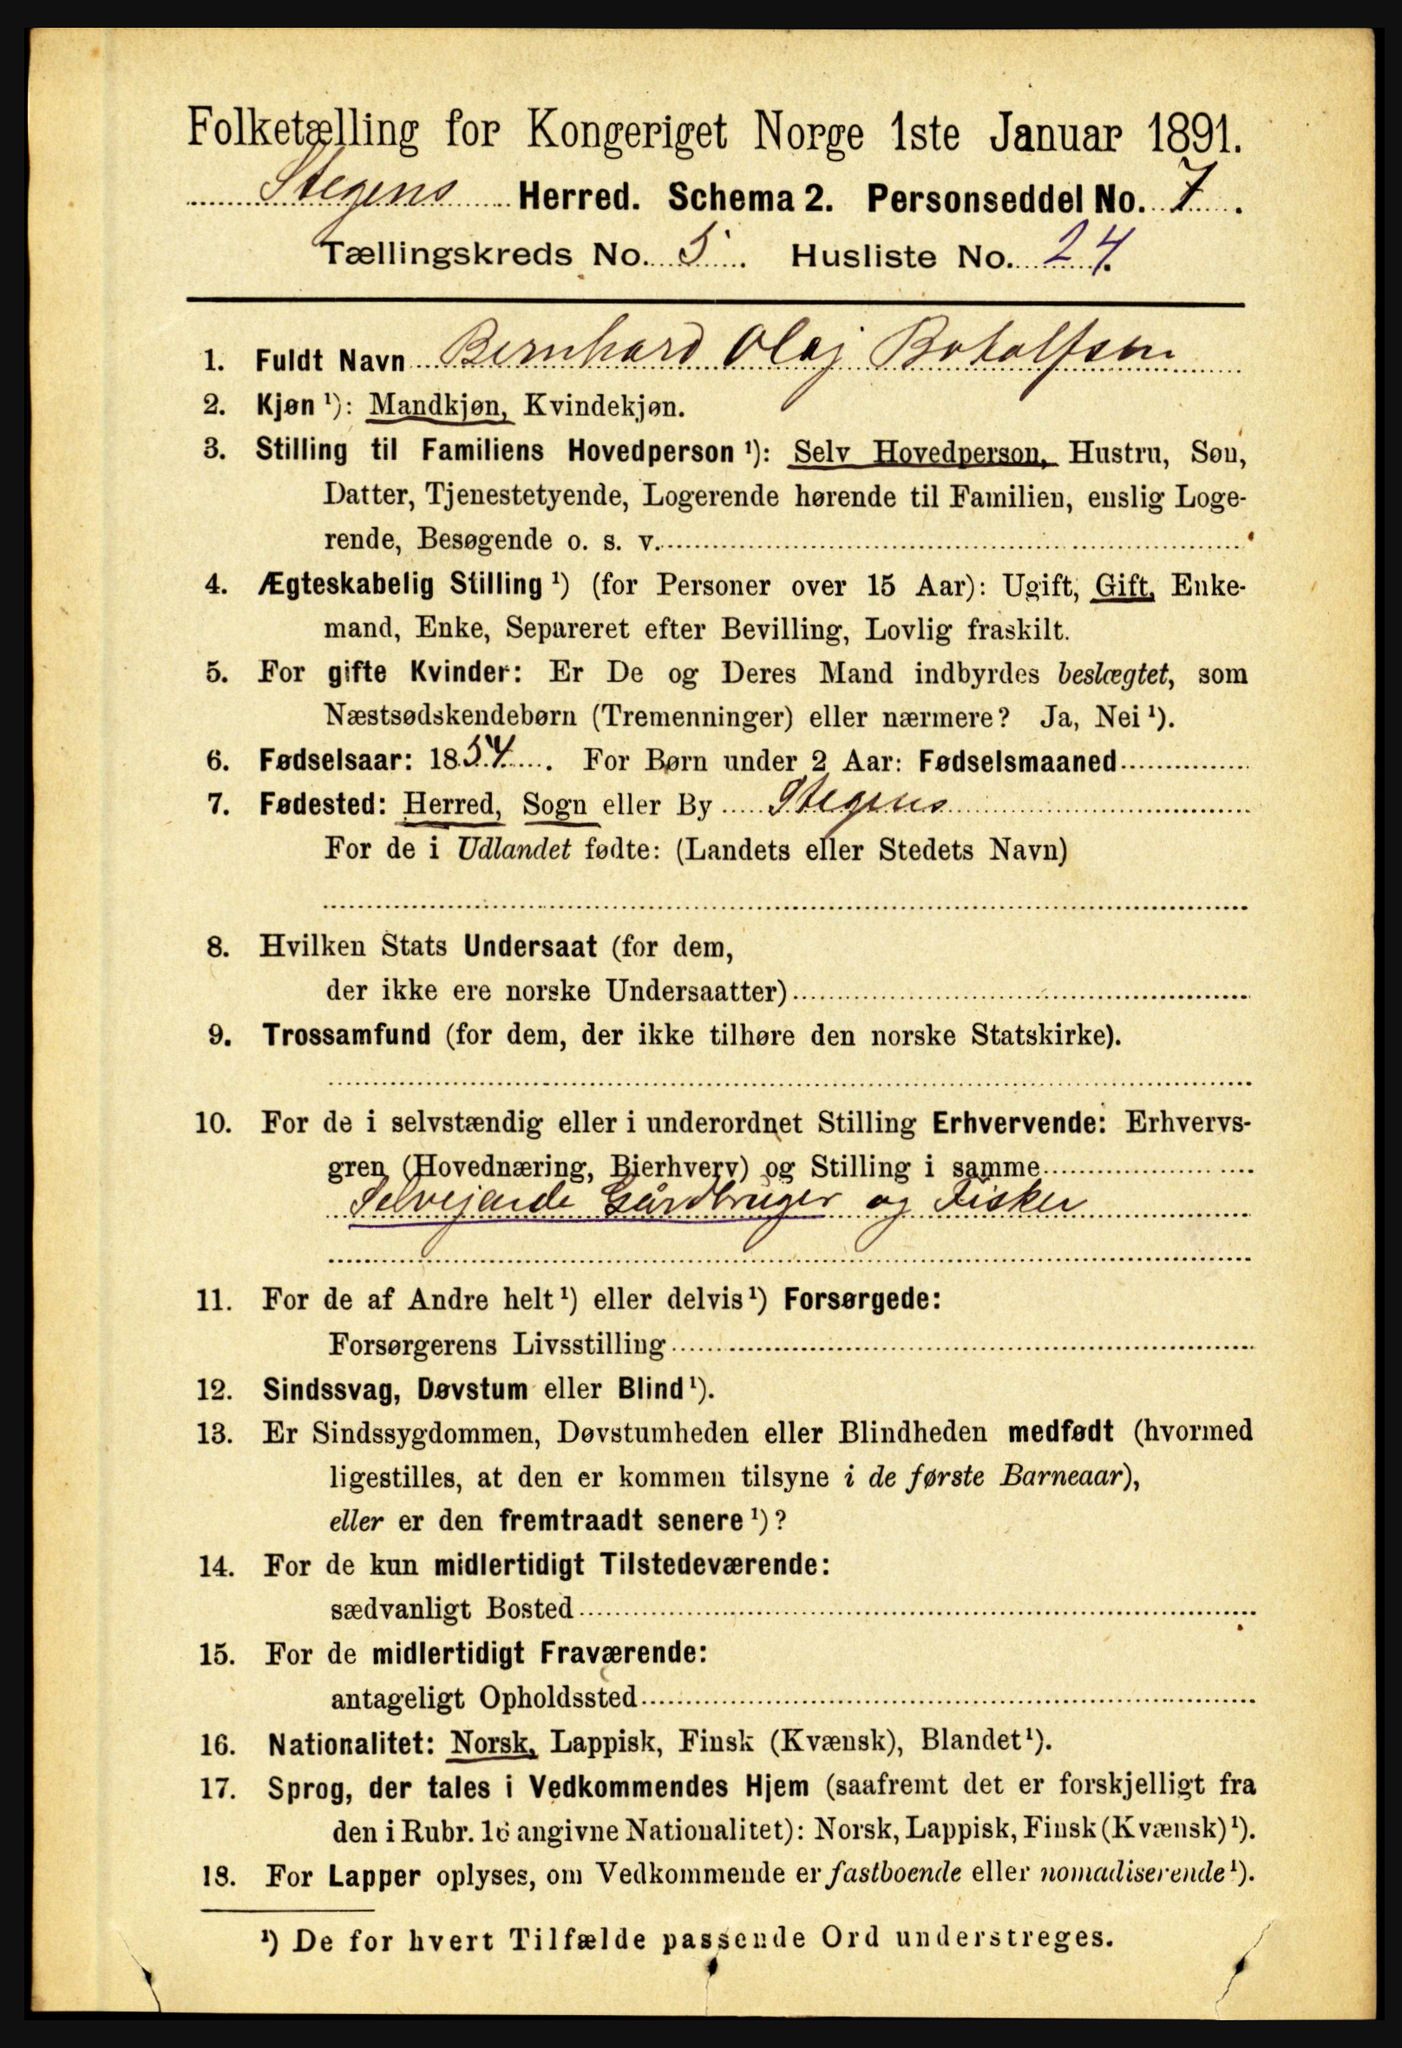 Folketælling for Kongeriget Norge 1ste Januar 1891.
Stegens Herred. Schema 2. Personseddel No. 7.
Tællingskreds No. 5. Husliste No. 24.
1. Fuldt Navn Bernhard Olaj Botolfsen
2. Kjøn ¹): Mandkjøn, Kvindekjøn.
3. Stilling til Familiens Hovedperson ¹): Selv Hovedperson, Hustru, Søn,
Datter, Tjenestetyende, Logerende hørende til Familien, enslig Loge-
rende, Besøgende o. s. v.
4. Ægteskabelig Stilling ¹) (for Personer over 15 Aar): Ugift, Gift, Enke-
mand, Enke, Separeret efter Bevilling, Lovlig fraskilt.
5. For gifte Kvinder: Er De og Deres Mand indbyrdes beslægtet, som
Næstsødskendebørn (Tremenninger) eller nærmere? Ja, Nei ¹).
6. Fødselsaar: 1854. For Børn under 2 Aar: Fødselsmaaned
7. Fødested: Herred, Sogn eller By Stegens
For de i Udlandet fødte: (Landets eller Stedets Navn)
8. Hvilken Stats Undersaat (for dem,
der ikke ere norske Undersaatter)
9. Trossamfund (for dem, der ikke tilhøre den norske Statskirke).
10. For de i selvstændig eller i underordnet Stilling Erhvervende: Erhvervs-
gren (Hovednæring, Bierhverv) og Stilling i samme
Selvejende Gårdbruger og Fisker
11. For de af Andre helt ¹) eller delvis ¹) Forsørgede:
Forsørgerens Livsstilling
12. Sindssvag, Døvstum eller Blind ¹).
13. Er Sindssygdommen, Døvstumheden eller Blindheden medfødt (hvormed
ligestilles, at den er kommen tilsyne i de første Barneaar),
eller er den fremtraadt senere ¹)?
14. For de kun midlertidigt Tilstedeværende:
sædvanligt Bosted
15. For de midlertidigt Fraværende:
antageligt Opholdssted
16. Nationalitet: Norsk, Lappisk, Finsk (Kvænsk), Blandet ¹).
17. Sprog, der tales i Vedkommendes Hjem (saafremt det er forskjelligt fra
den i Rubr. 16 angivne Nationalitet): Norsk, Lappisk, Finsk (Kvænsk) ¹).
18. For Lapper oplyses, om Vedkommende er fastboende eller nomadiserende ¹).
¹) De for hvert Tilfælde passende Ord understreges.